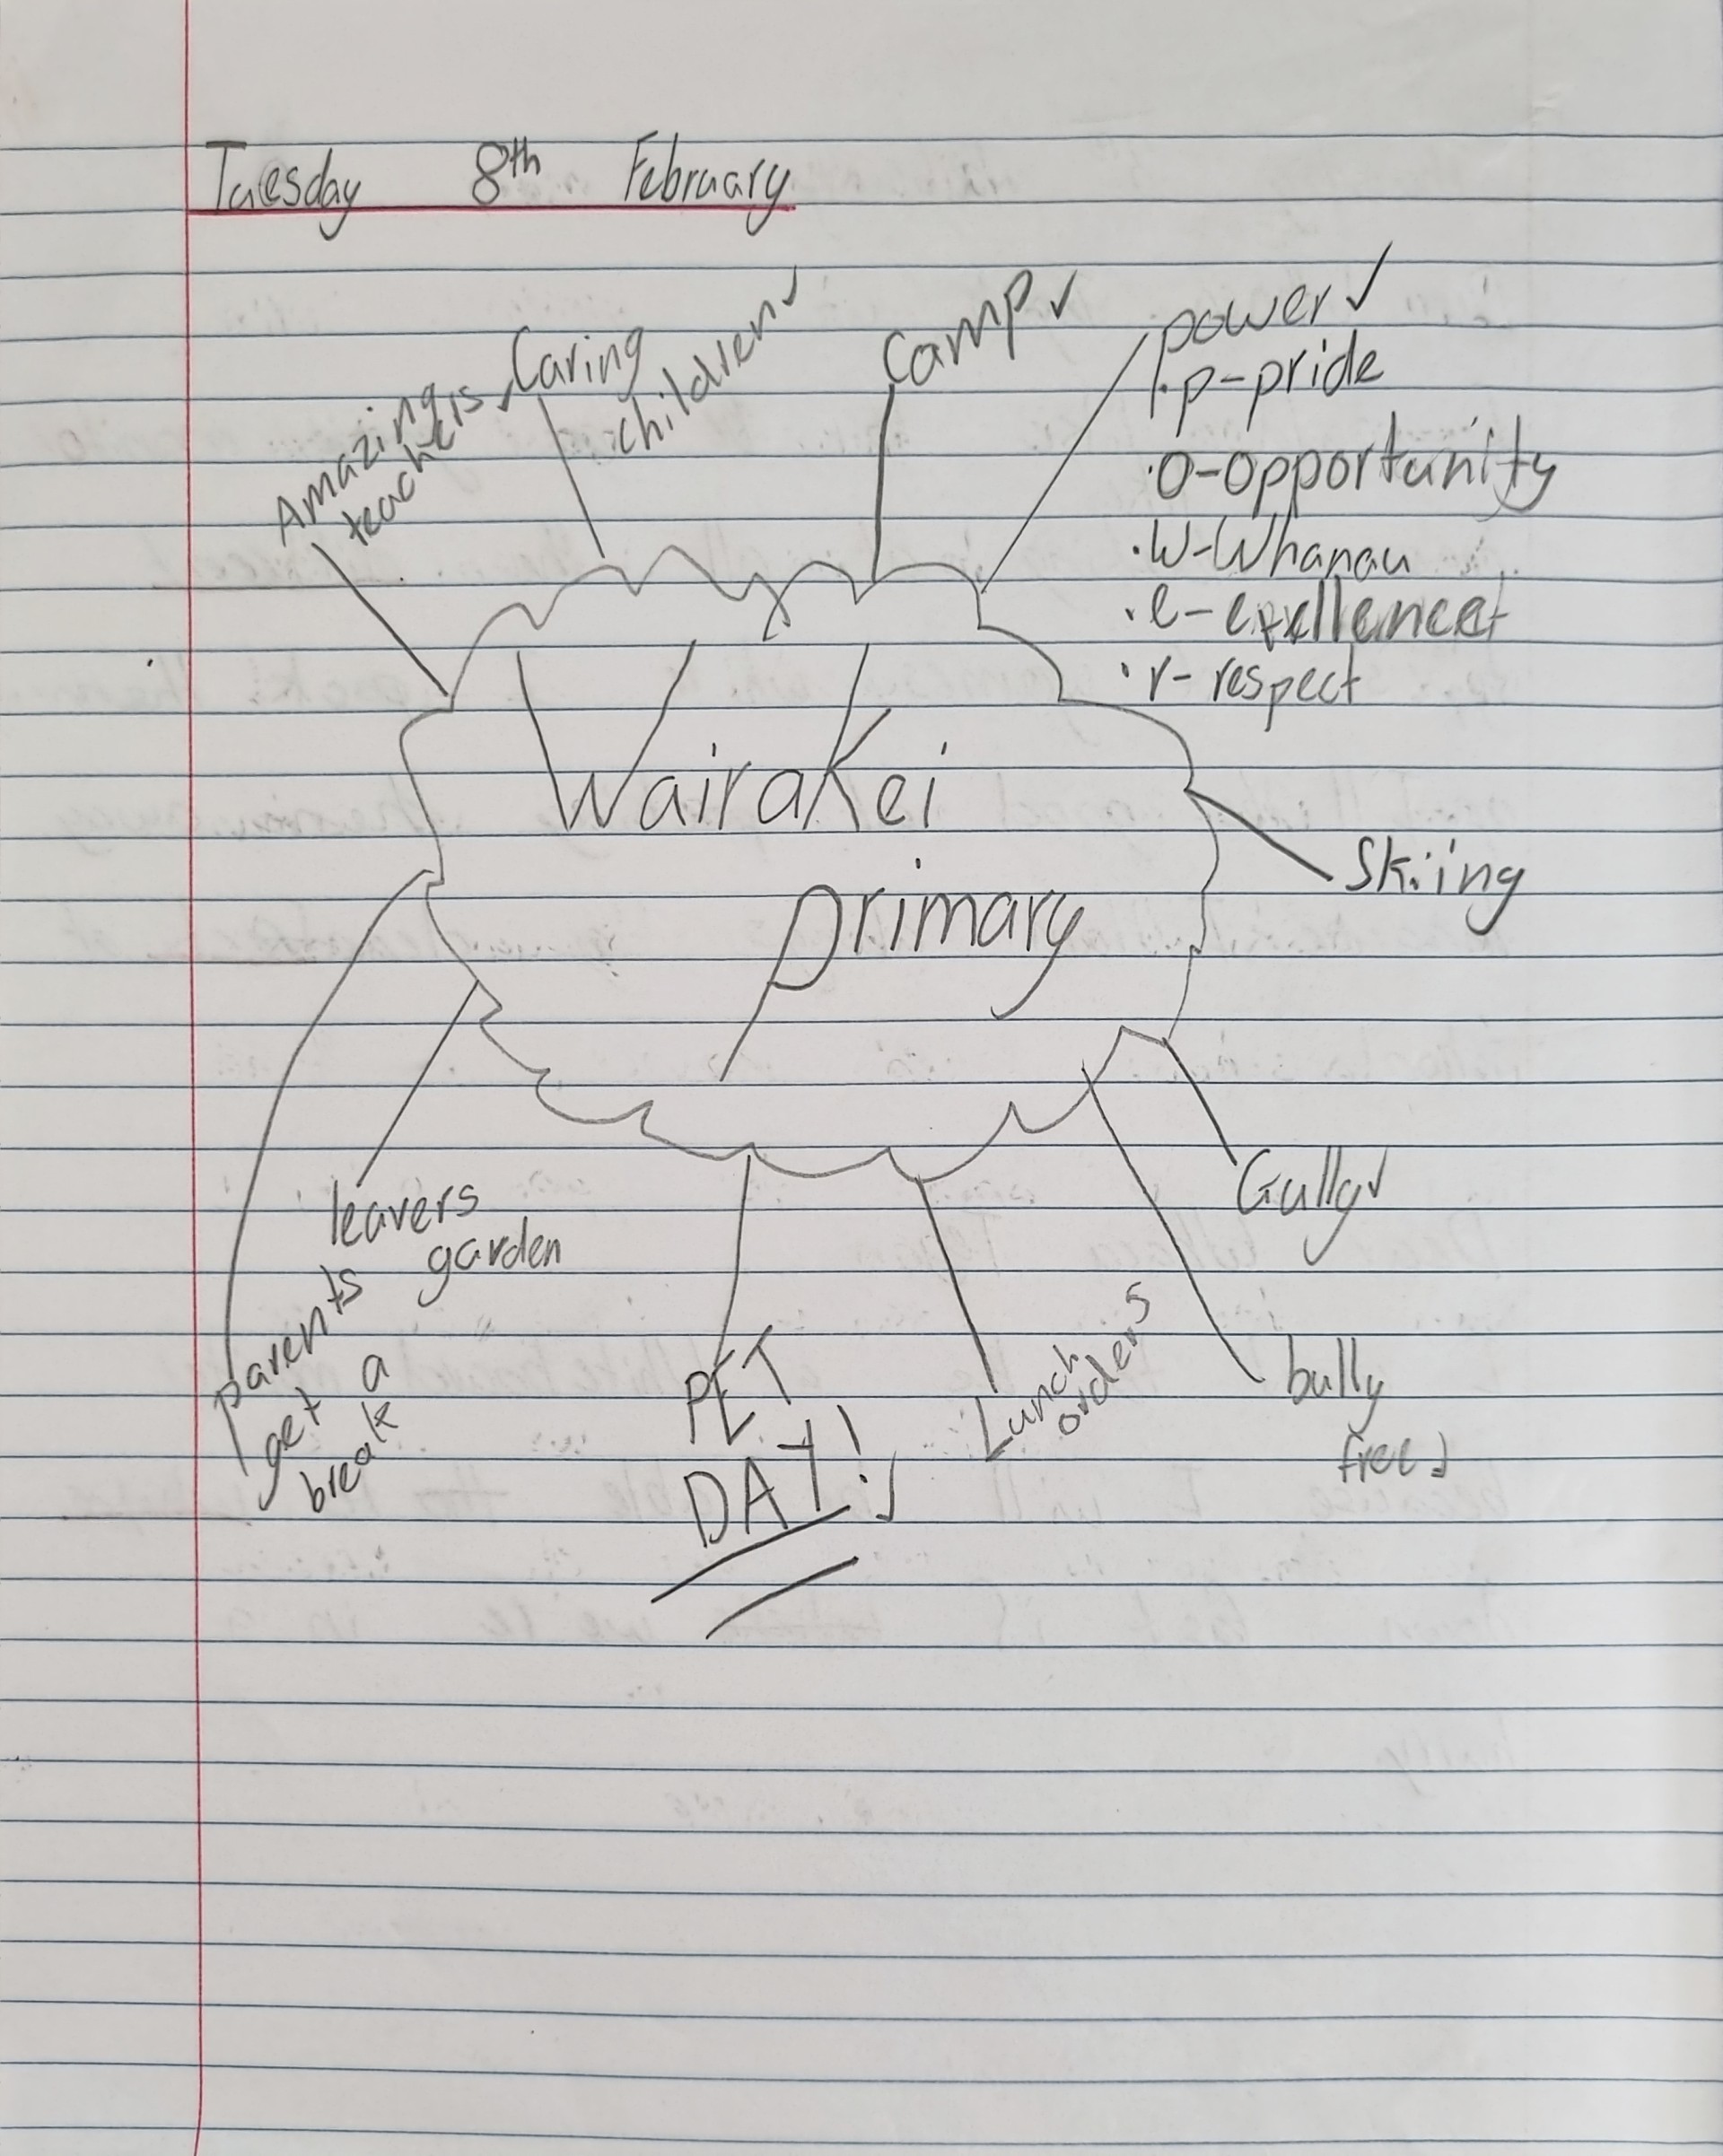 Tuesday 8th February
Amazing
teachers ✓
Caring
children ✓
Camp ✓
power ✓
· p-pride
· o-opportunity
· W-Whanau
· e-
· r-respect
Wairakei
primary
Skiing
Gully ✓
bully
free ✓
Lunch
orders
PET
DAY! ✓
leavers
garden
parents
get a
break